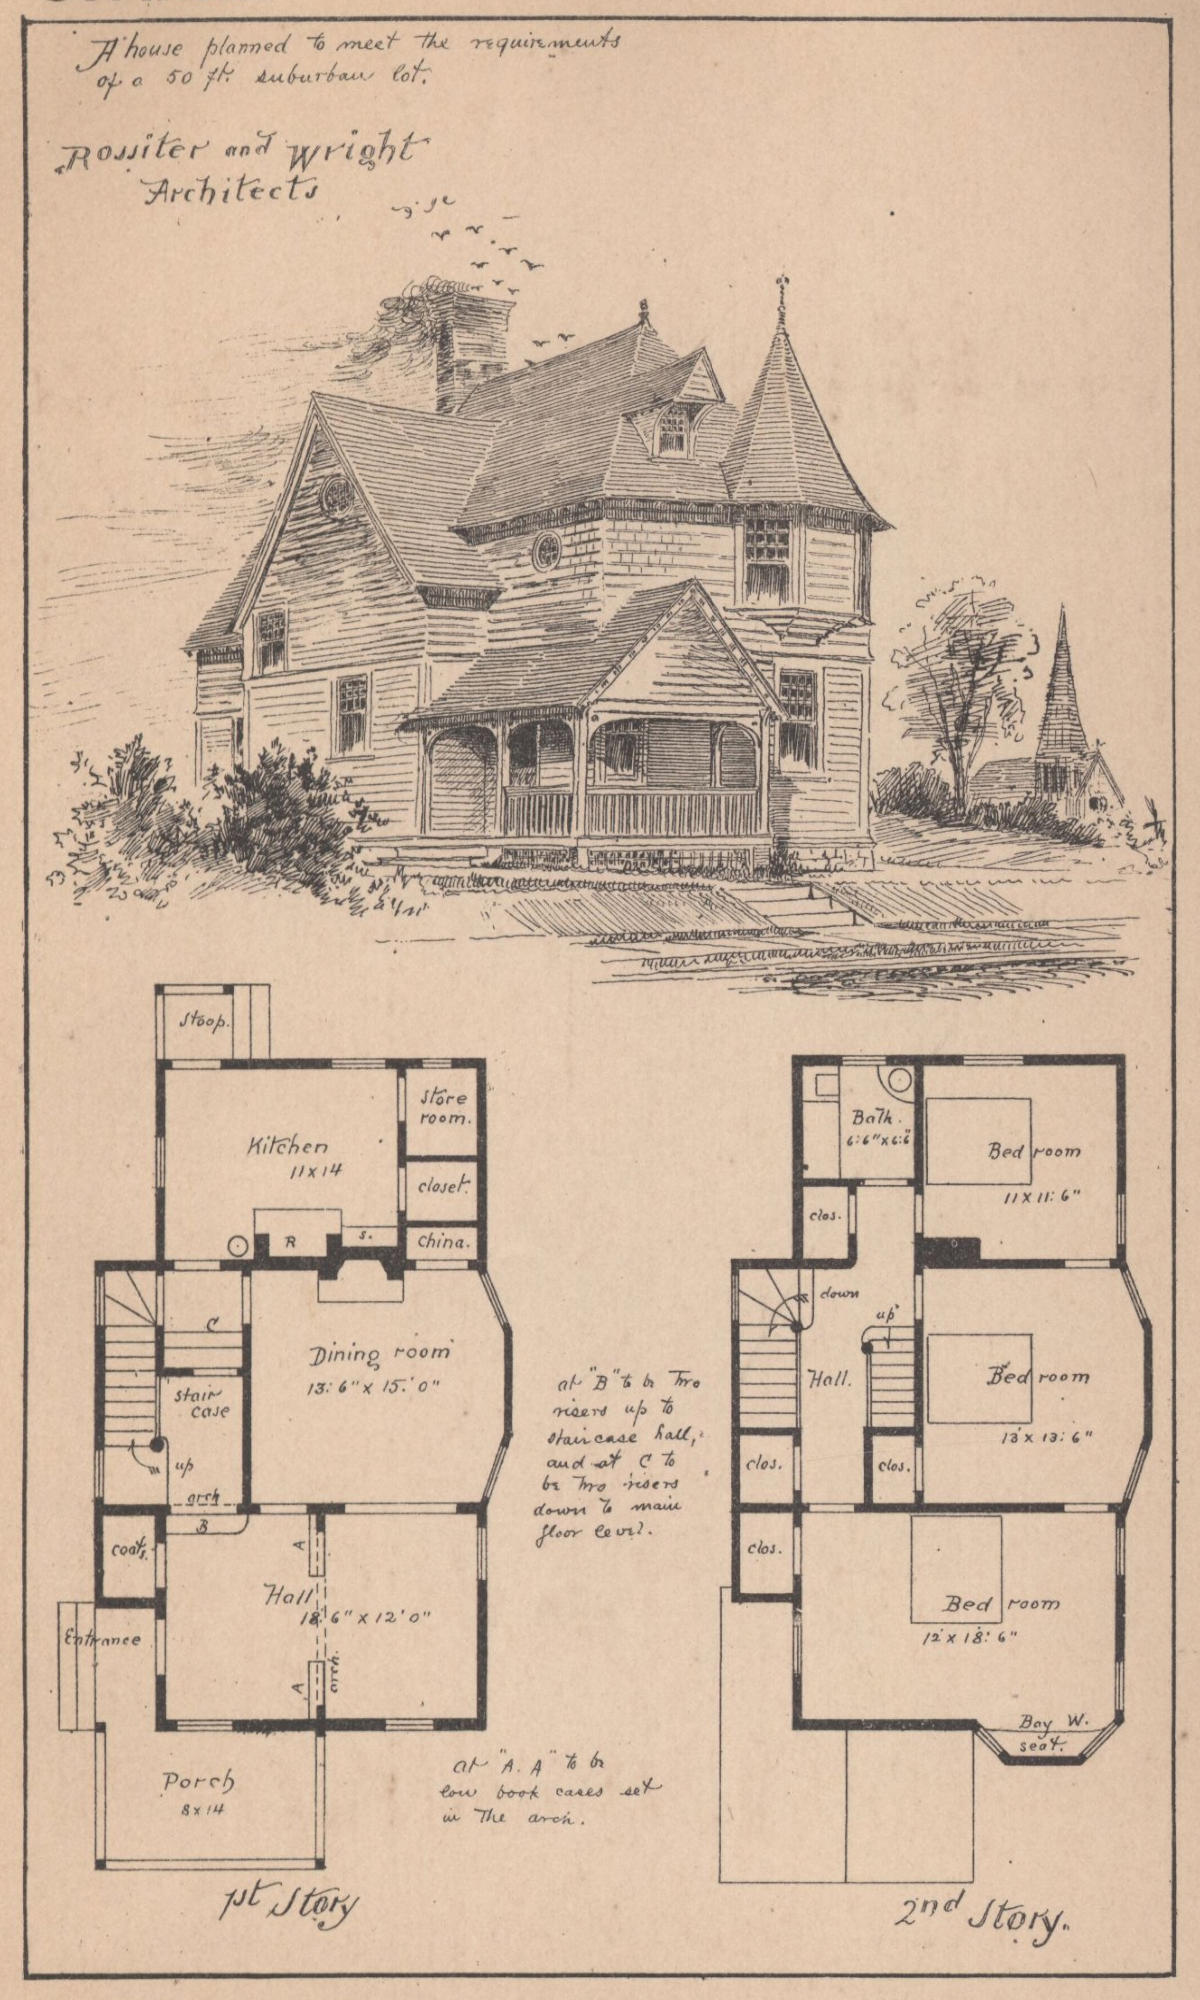 A house planned to meet the requirements
of a 50 ft. suburban lot.
Rossiter and Wright
Architects
Stoop.
Kitchen
11 x 14
Store
room.
closet.
China.
R
s.
C
Stair
case
up
arch
B
Dining room
13:6" x 15:0"
coats.
Hall
18'6" x 12'0"
A
A
arch.
Entrance
Porch
8 x 14
1st Story
at "B" to be two
risers up to
staircase hall,
and at C to
be two risers
down to main
floor level.
at "A.A" to be
low book cases set
in the arch.
Bath.
6:6" x 6:6"
Bed room
11 x 11:6"
clos.
down
up
Hall.
Bed room
13' x 13:6"
clos.
clos.
clos.
Bed room
12' x 18:6"
Bay W.
seat.
2nd Story.